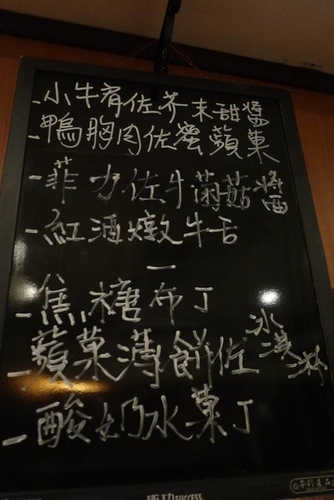 -小牛肩佐芥末甜醬
-鴨胸肉佐蜜蘋菓
-菲力佐牛菌菇醬
-紅酒燉牛舌
—
-焦糖布丁
-蘋菓薄餅佐冰淇淋
-酸奶水菓丁